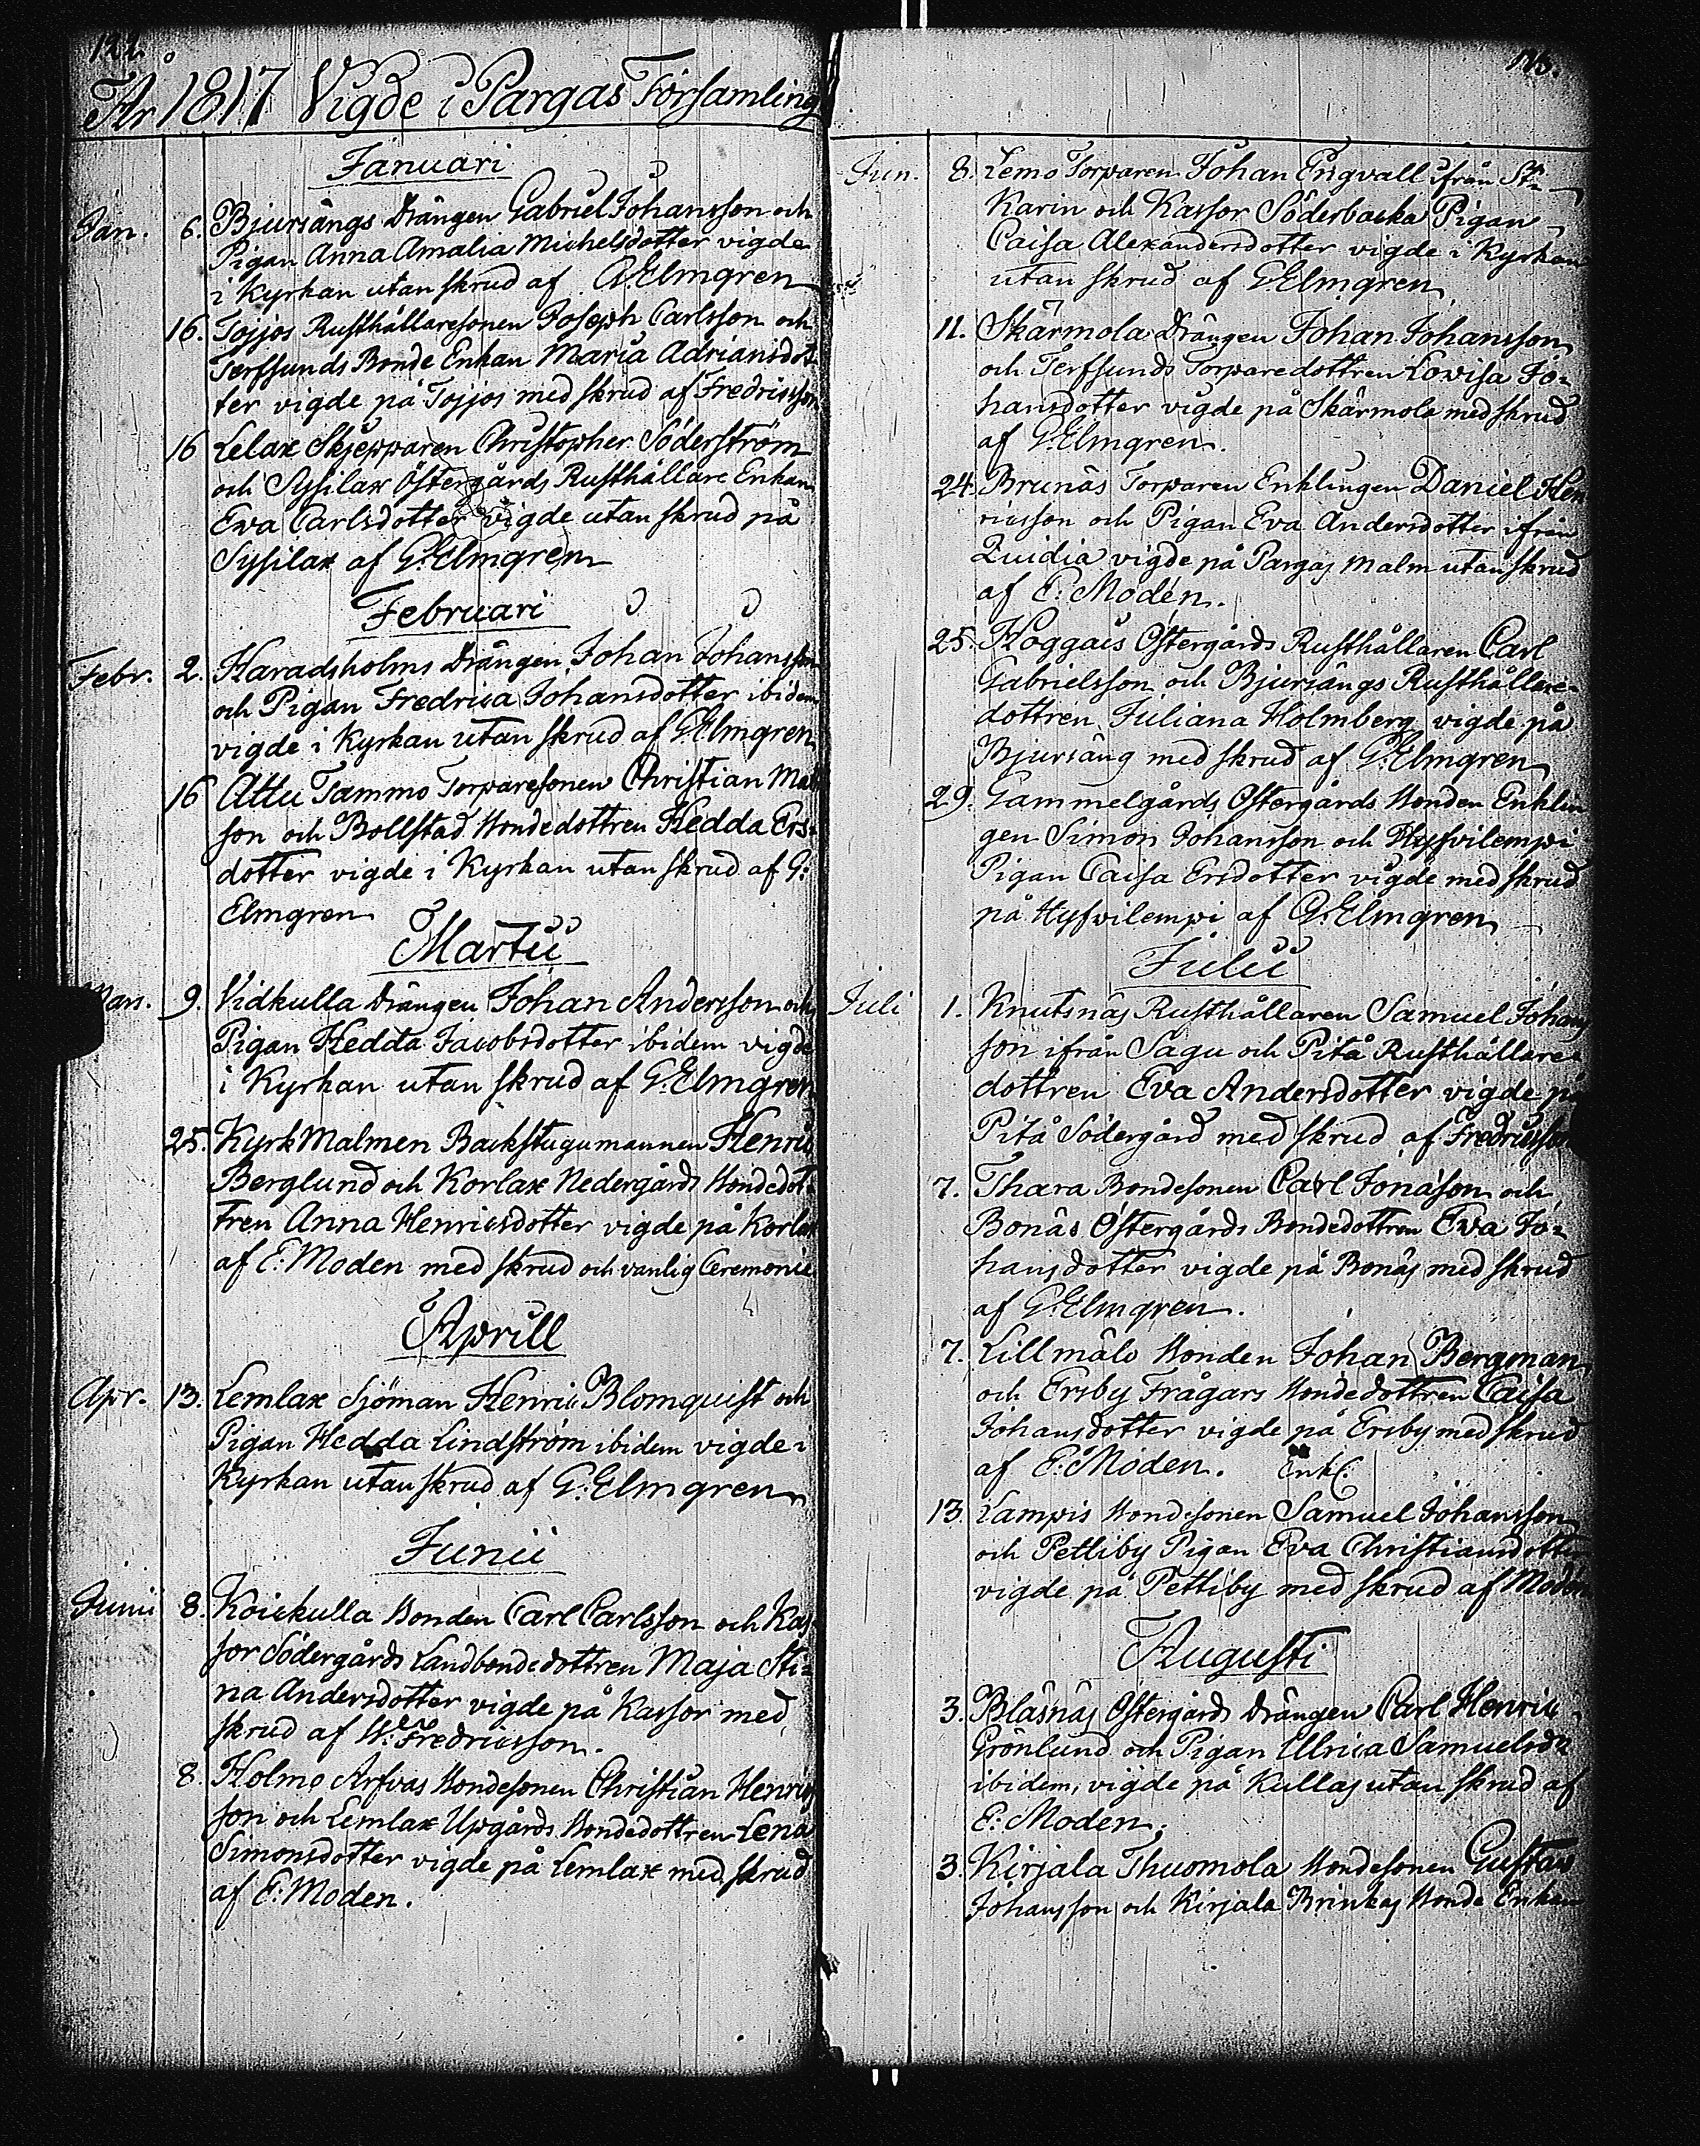 122.
År 1817 Vigde i Pargas Församling
Januari
Jan. 6. Bjursängs Drängen Gabriel Johansson och
Pigan Anna Amalia Michelsdotter vigde
i Kyrkan utan skrud af G. Elmgren
16. Tojjos Rusthållaresonen Joseph Carlsson och
Terfsunds Bonde Enkan Maria Adriansdot-
ter vigde på Tojjos med skrud af Fredricsson
16 Lelax Skjepparen Christopher Söderström
och Sysilax Östergårds Rusthållare Enkan
Eva Carlsdotter vigde utan skrud på
Sysilax af G. Elmgren
Februari
Febr. 2. Haradsholms Drängen Johan Johansson
och Pigan Fredrica Johansdotter ibidem
vigde i Kyrkan utan skrud af G. Elmgren
16 Attu Tammo Torparesonen Christian Mats
son och Bollstad Bondedottren Hedda Ers-
dotter vigde i Kyrkan utan skrud af G:
Elmgren
Martii
Mars. 9. Vidkulla Drängen Johan Andersson och
Pigan Hedda Jacobsdotter ibidem vigde
i Kyrkan utan skrud af G. Elmgren
25. KyrkMalmen Backstugumannen Henric
Berglund och Korlax Nedergårds Bondedot-
tren Anna Henricsdotter vigde på Korlax
af E: Moden med skrud och vanlig Ceremonie
Aprill
Apr. 13. Lemlax Sjöman Henric Blomquist och
Pigan Hedda Lindström ibidem vigde i
Kyrkan utan skrud af G: Elmgren
Junii
Junii 8. Koickulla Bonden Carl Carlsson och Kas-
sor Södergårds Landbondedottren Maja Sti-
na Andersdotter vigde på Kassor med
skrud af W: Fredricsson.
8. Holmo Arfvas Bondesonen Christian Henrics
son och Lemlax Upgårds Bondedottren Lena
Simonsdotter vigde på Lemlax med skrud
af E: Moden.
Jun. 8. Lemo Torparen Johan Engvall ifrån St:
Karin och Kassor Söderbacka Pigan
Caisa Alexandersdotter vigde i Kyrkan
utan skrud af G. Elmgren
11. Skärmola Drängen Johan Johansson
och Terfsunds Torparedottren Lovisa Jo-
hansdotter vigde på Skärmola med skrud
af G. Elmgren.
24. Brunäs Torparen Enklingen Daniel Hen
ricsson och Pigan Eva Andersdotter ifrån
Quidia vigde på Pargas Malm utan skrud
af E: Moden.
25. Koggais Östergårds Rusthållaren Carl
Gabrielsson och Bjursängs Rusthållare-
dottren Juliana Holmberg vigde på
Bjursäng med skrud af G. Elmgren
29. Gammelgårds Östergårds Bonden Enklin
gen Simon Johansson och Hyfvilempi
Pigan Caisa Ersdotter vigde med skrud
på Hyfvilempi af G. Elmgren
Julii
Juli 1. Knutsnäs Rusthållaren Samuel Johans
son ifrån Sagu och Pitå Rusthållare-
dottren Eva Andersdotter vigde på
Pitå Södergård med skrud af Fredricsson
7. Thara Bondesonen Carl Jonason och
Bonäs Östergårds Bondedottren Eva Jo-
hansdotter vigde på Bonäs med skrud
af G. Elmgren.
7. Lillmälö Bonden Johan Bergman
och Ersby Frågars Bondedottren Caisa
Johansdotter vigde på Ersby med skrud
af E: Moden. Enkl.
13. Lampis Bondesonen Samuel Johansson
och Pettiby Pigan Eva Christiansdotter
vigde på Pettiby med skrud af Moden
Augusti
3. Bläsnäs Östergårds Drängen Carl Henric
Grönlund och Pigan Ulrica Samuelsdr
ibidem, vigde på Kullas utan skrud af
E: Moden.
3. Kirjala Thuomola Bondesonen Gustav
Johansson och Kirjala Brinkas Bonde Enkan